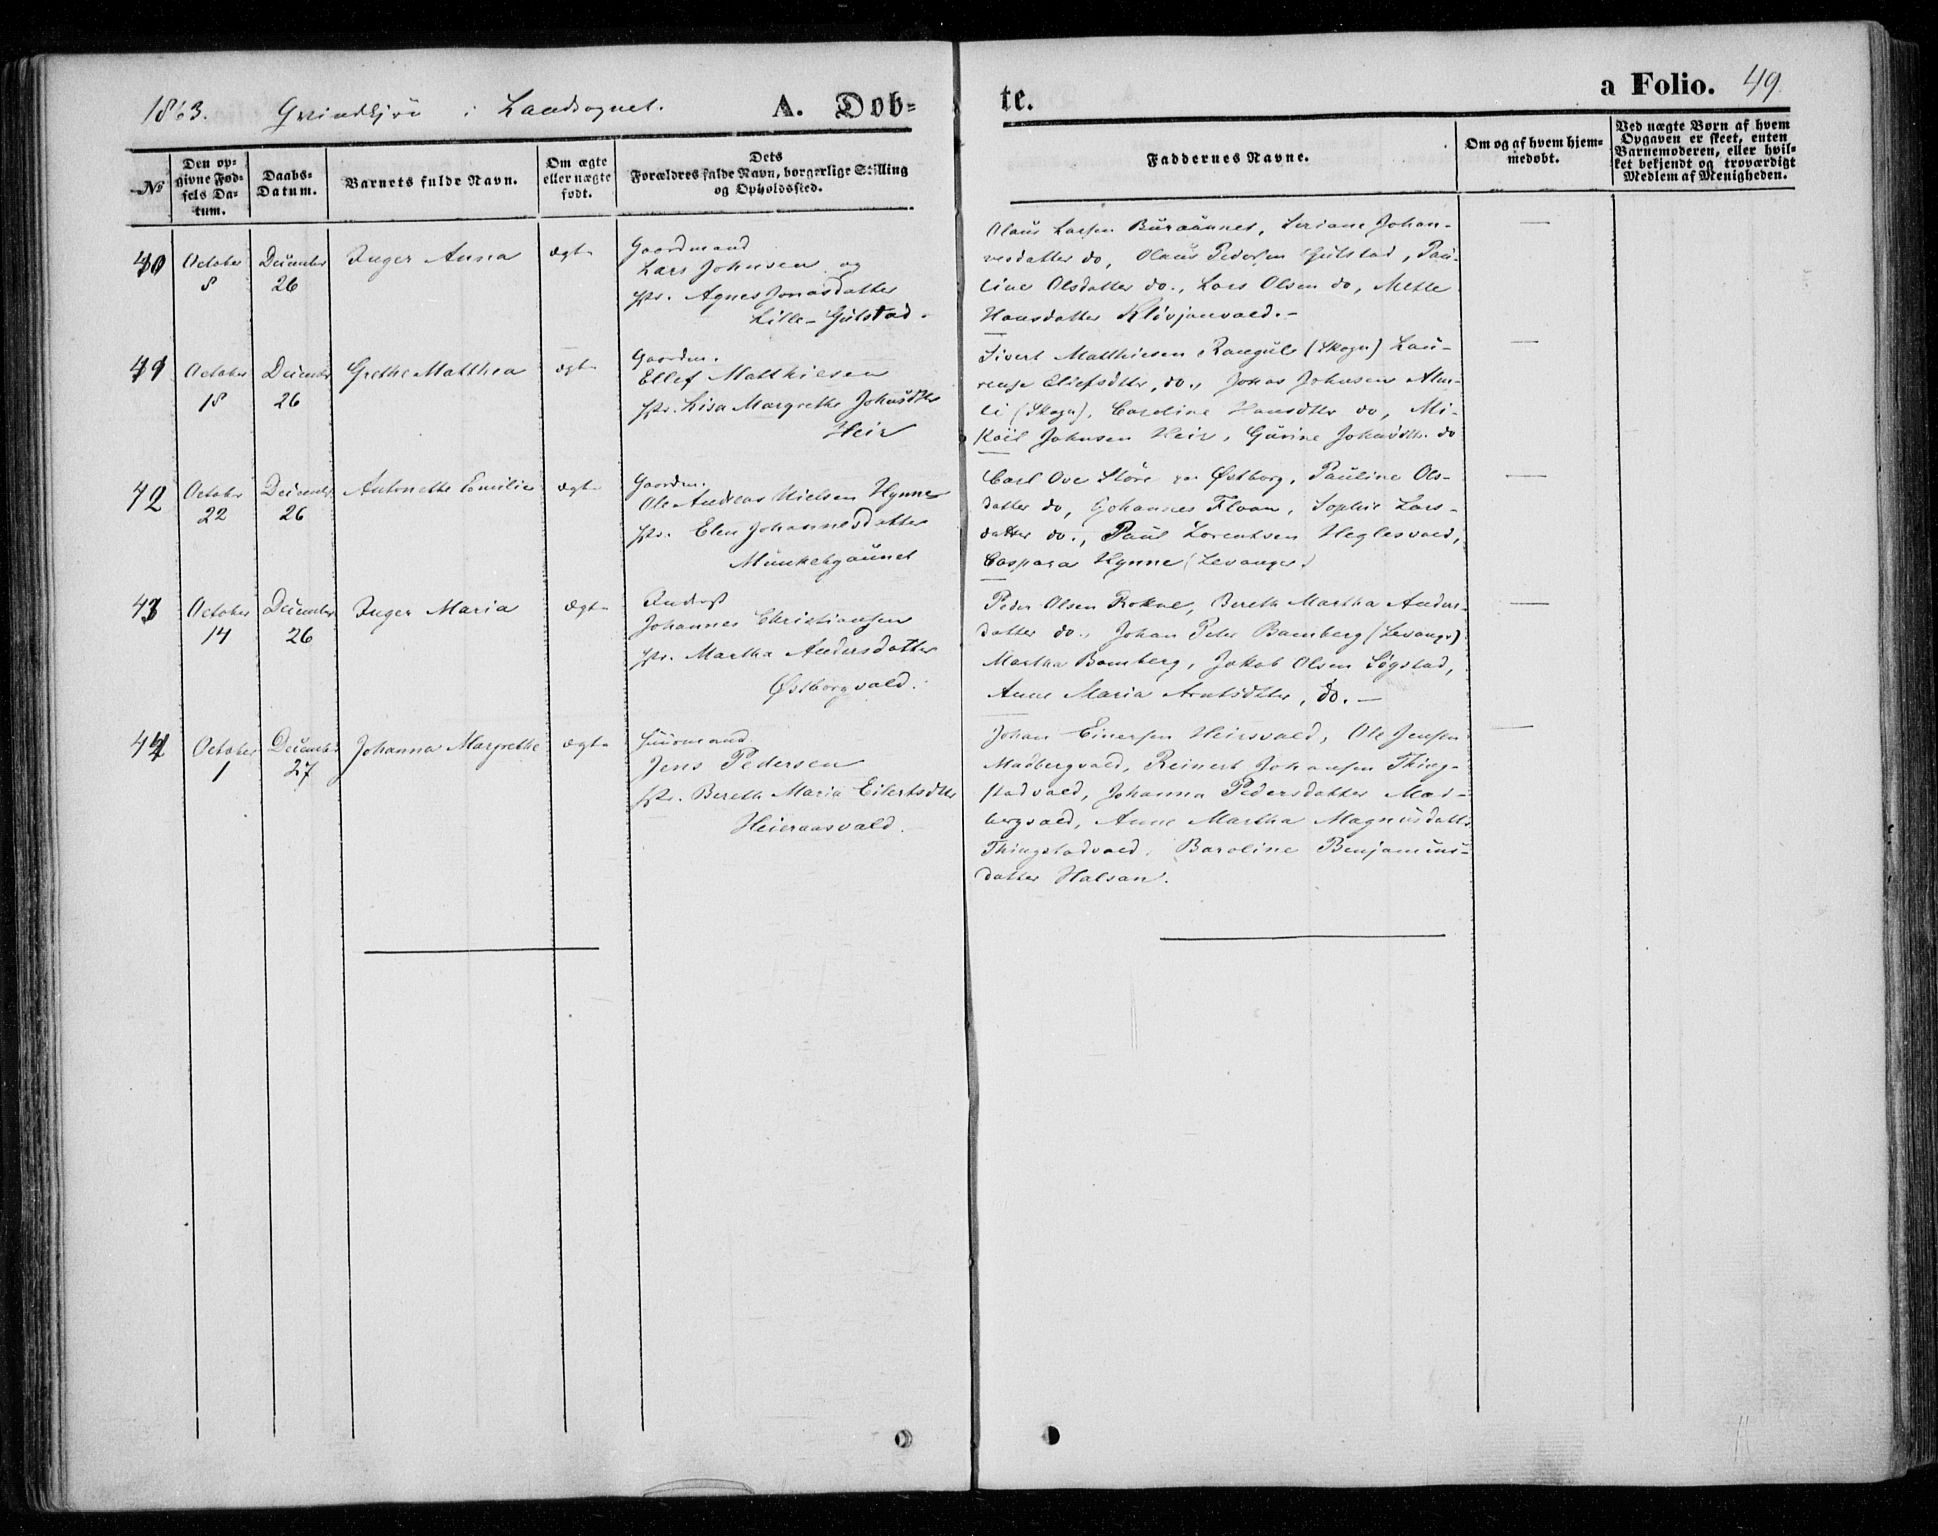 1863. Qvindkjøn i Landsognet. A. Døb-
te.
a Folio. 49.
No
Den op-
givne Fød-
sels Da-
tum.
Daabs-
Datum.
Barnets fulde Navn.
Om ægte
eller uægte
født.
Dets
Forældres fulde Navn, borgerlige Stilling
og Opholdssted.
Faddernes Navne.
Om og af hvem hjem-
medøbt.
Ved uægte Børn af hvem
Opgaven er skeet, enten
Barnemoderen, eller hvil-
ket bekjendt og troværdigt
Medlem af Menigheden.
40 October 8 December 26 Inger Anna ægte
Gaardmand
Lars Johnsen og
Agnes Jonasdatter
Lille-Gulstad.
Olaus Larsen Buraunet, Johan-
nesdatter do, Olaus Pedersen Gulstad, Pau-
line Olsdatter do., Lars Olsen do, Mette
Hansdatter
41 October 18 December 26 Grethe Matthea ægte
Gaardm.
Ellef Matthiesen
Lisa Margrethe Johnsdtter
Heir
Sivert Matthiesen (Skogn) Lau-
Ellefsdtter, do., Jonas Johnsen Alm-
li (Skogn), Caroline Hansdtter do, Mi-
kael Johnsen Heir, Gurine Johnsdtr. do
42 October 22 December 26 Antonette Emilie ægte
Gaardm.
Ole Andreas Nielsen Hynne
Elen Johannesdatter
Munkehgaunet
Carl Ove Støre Østborg, Pauline Ols-
datter do, Johannes Floan, Sophie Lars-
datter do., Paul Lorentsen Heglesvald,
Caspara Hynne (Levanger)
43 October 14 December 26 Inger Maria ægte
Inderst
Johannes Christiansen
Martha Andersdatter
Østborgvald.
Peder Olsen Rokne, Bereth Martha Anders-
datter do., Johan Peter Bamberg (Levanger)
Martha Bamberg, Jakob Olsen Søgstad,
Anne Maria Arntsdtter, do.-
44 October 1 December 27 Johanna Margrethe ægte
Huusmand
Jens Pedersen
Bereth Maria Eilertsdtter
Heieraasvald.
Johan Einersen Heirsvald, Ole Jensen
Madbergvald, Reinert Johansen Thing-
stadvald, Johanna Pedersdatter Mad-
bergvald, Anne Martha Magnusdatter
Thingstadvald, Baroline Benjamins-
datter Halsan.